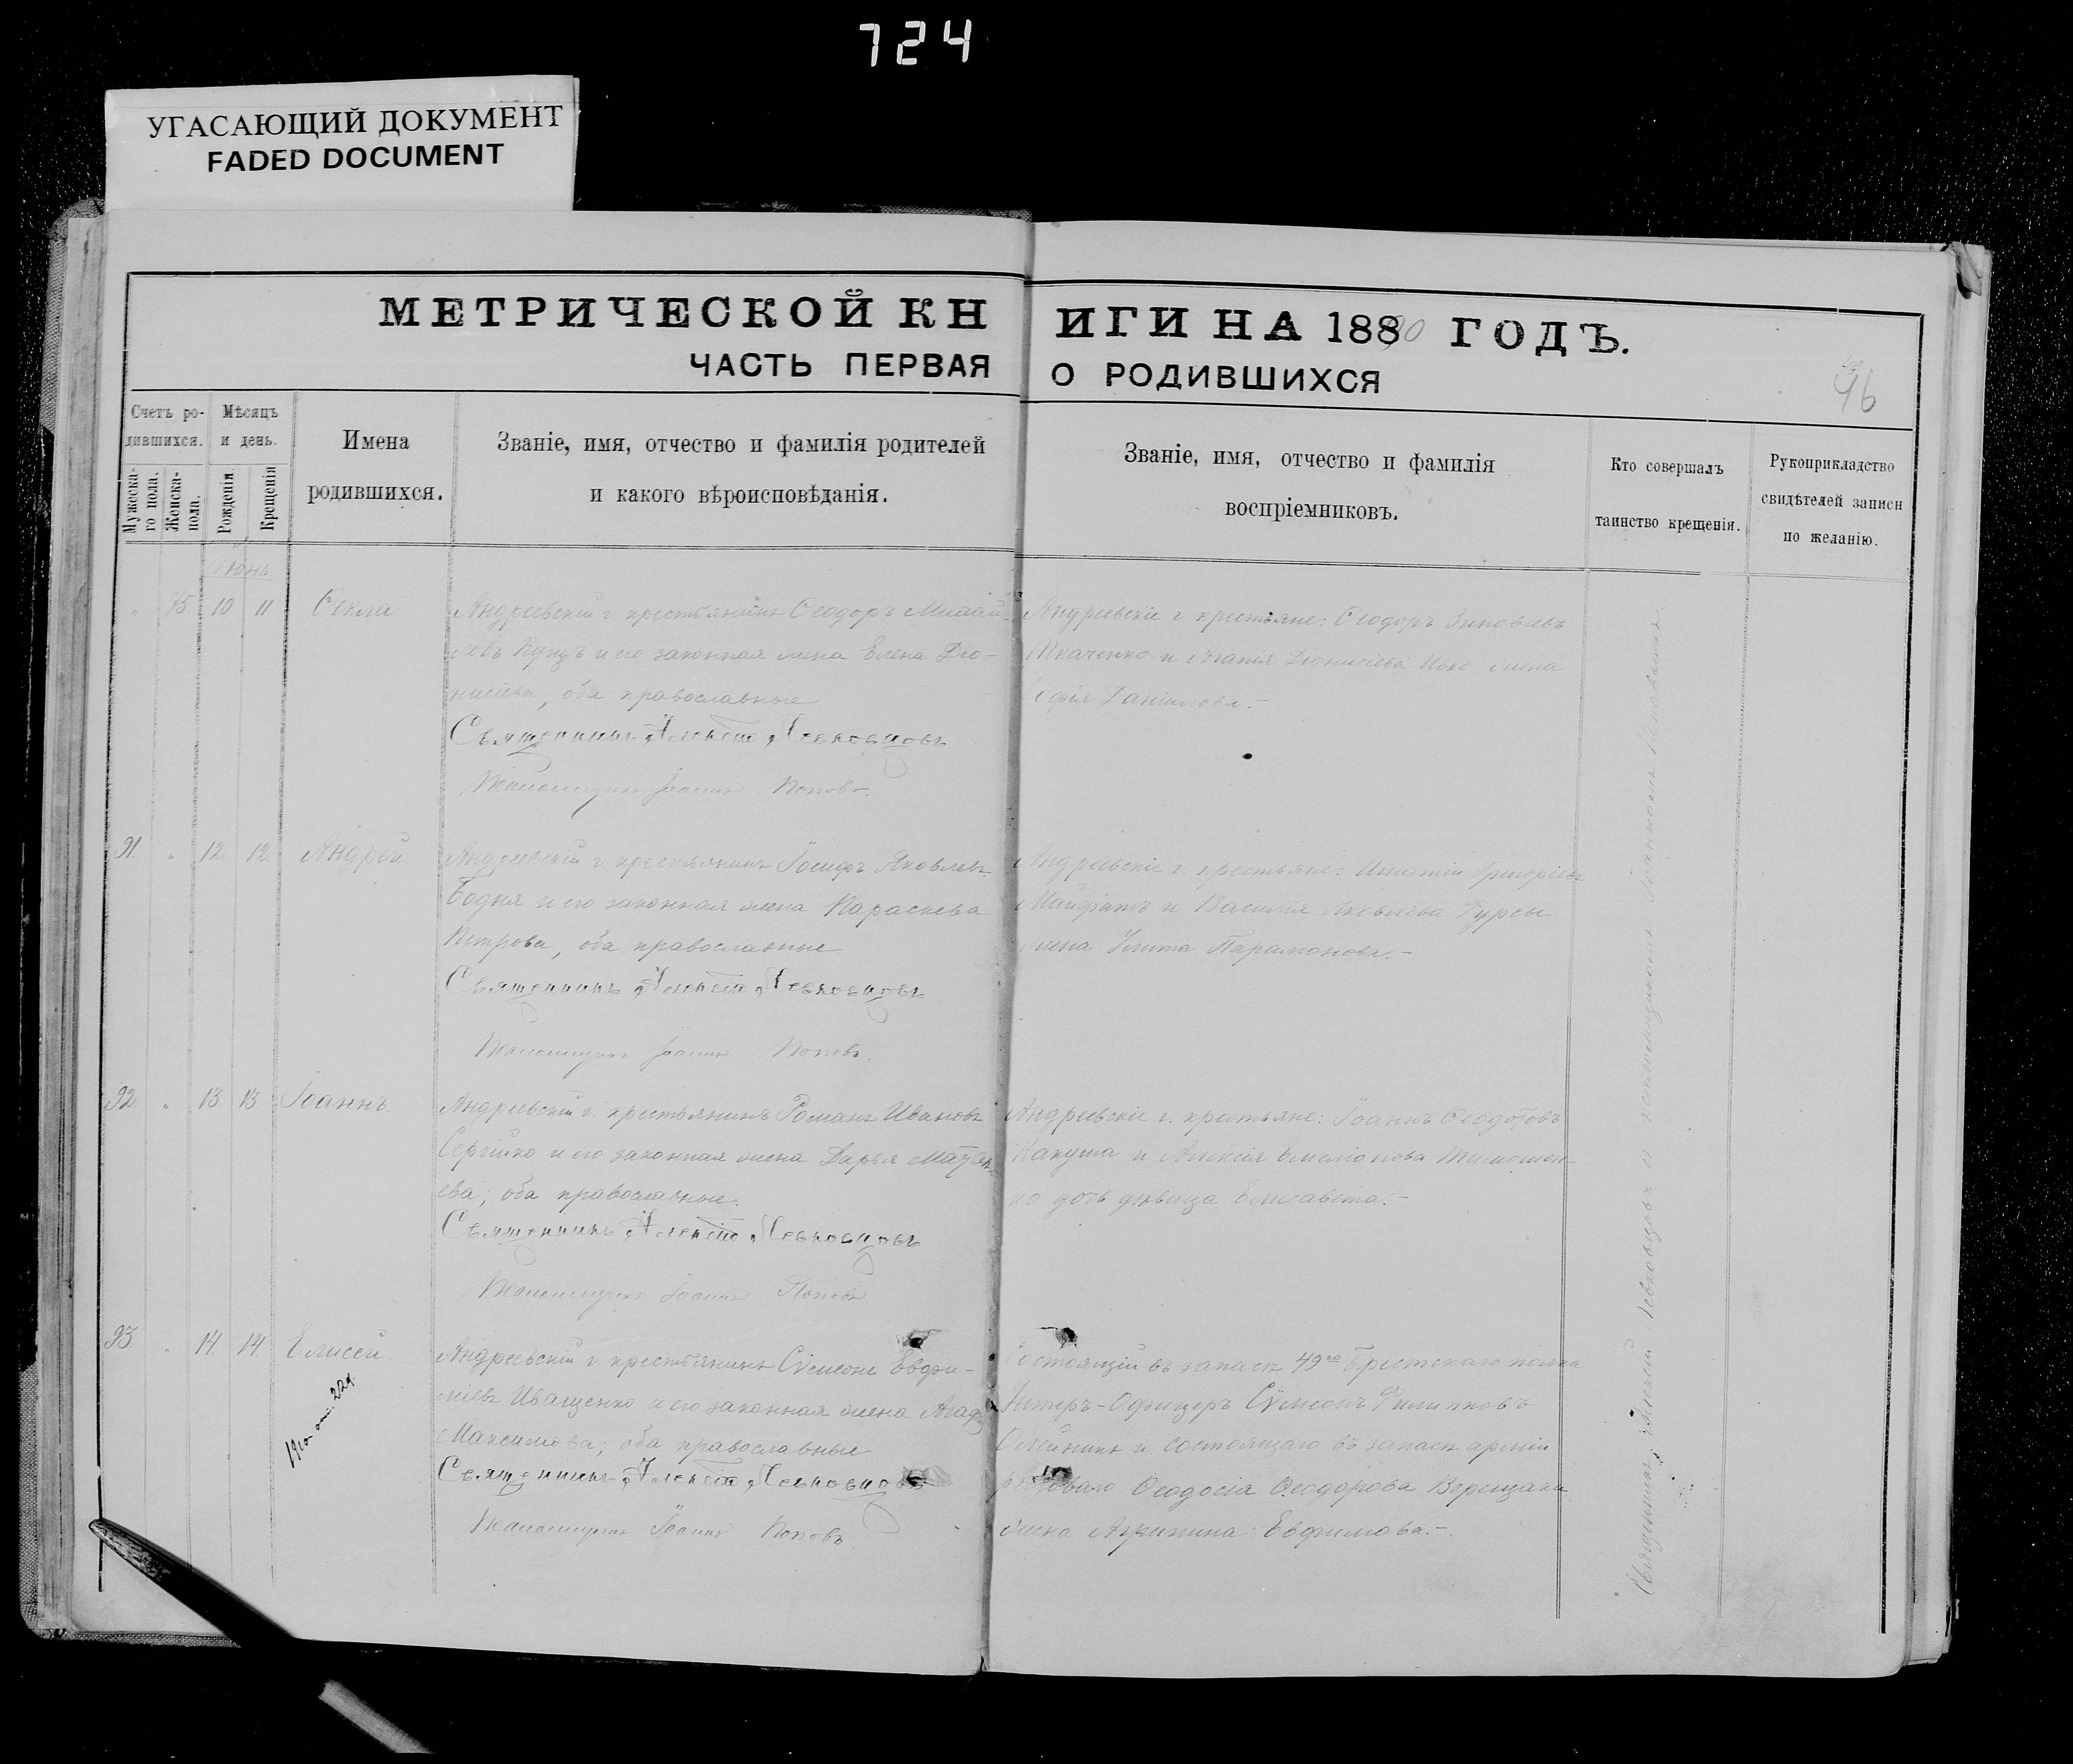 724
УГАСАЮЩИЙ ДОКУМЕНТ
FADED DOCUMENT
МЕТРИЧЕСКОЙ КНИГИ НА 1880 ГОДЪ.
ЧАСТЬ ПЕРВАЯ О РОДИВШИХСЯ
96
Счетъ родившихся.
Мужеска-го пола.
Женска-пола.
Мѣсяцъ и день.
Рожденія
Крещенія
Имена родившихся.
Званіе, имя, отчество и фамилія родителей
и какого вѣроисповѣданія.
Званіе, имя, отчество и фамилія
воспріемниковъ.
Кто совершалъ
таинство крещенія.
Рукоприкладство
свидѣтелей записи
по желанію.
Іюнь
" 75 10 11 Ѳекла
Андреевскій г. крестьянинъ Ѳеодоръ Михай-
ловъ и его законная жена Елена Діо-
нисіева, оба православные
Священникъ Алексій Левковцовъ
Псаломщикъ Іоаннъ Поповъ.
Андреевскіе г. крестьяне: Ѳеодоръ Зиновіевъ
Ткаченко и Діонисіева жена
Софія Даніилова.-
91 " 12 12 Андрей
Андреевскій г. крестьянинъ Іосифъ Яковлевъ
Бодня и его законная жена Параскева
Петрова, оба православные
Священникъ Алексій Левковцовъ
Псаломщикъ Іоаннъ Поповъ.
Андреевскіе г. крестьяне: Игнатій Григоріевъ
и Василія Яковлева Фурсы
жена Парамонова.-
92 " 13 13 Іоаннъ
Андреевскій г. крестьянинъ Романъ Ивановъ
Сергійко и его законная жена Дарья
ева; оба православные.
Священникъ Алексій Левковцовъ
Псаломщикъ Іоаннъ Поповъ
Андреевскіе г. крестьяне: Іоаннъ Ѳеодотовъ
и Алексія Емеліанова Тимошен-
ко дочь дѣвица Елисавета.-
93 " 14 14 Елисей
Андреевскій г. крестьянинъ Сѵмеонъ Евфи-
міевъ Иващенко и его законная жена
Максимова; оба православные
Священникъ Алексій Левковцовъ
Псаломщикъ Іоаннъ Поповъ.
Состоящій въ запасѣ 49го Брестскаго полка
Унтеръ-Офицеръ Сѵмеонъ Филипповъ
Олейникъ и состоящаго въ запасѣ арміи
рядоваго Ѳеодосія Ѳеодорова
жена Агрипина Евфимова.-
Священникъ Алексій Левковцовъ съ псаломщикомъ Іоанномъ Поповымъ.